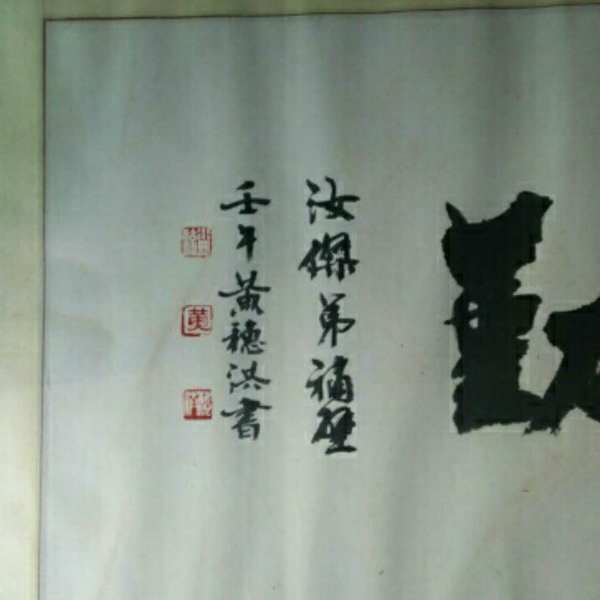 汝傑弟補壁
壬午黃穗洪書